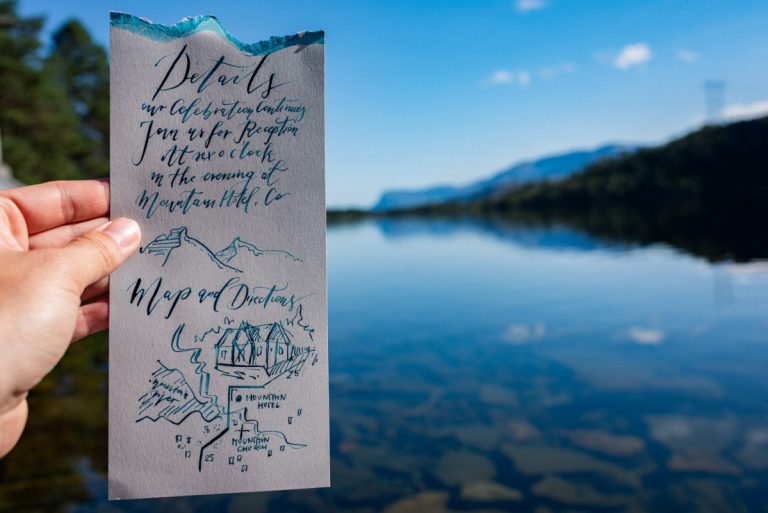 Details
our Celebration Continues
Join us for Reception
At six o'clock
in the evening at
Mountain Hotel, Co
Map and Directions
25
MOUNTAIN
HOTEL
MOUNTAIN
CHURCH
25